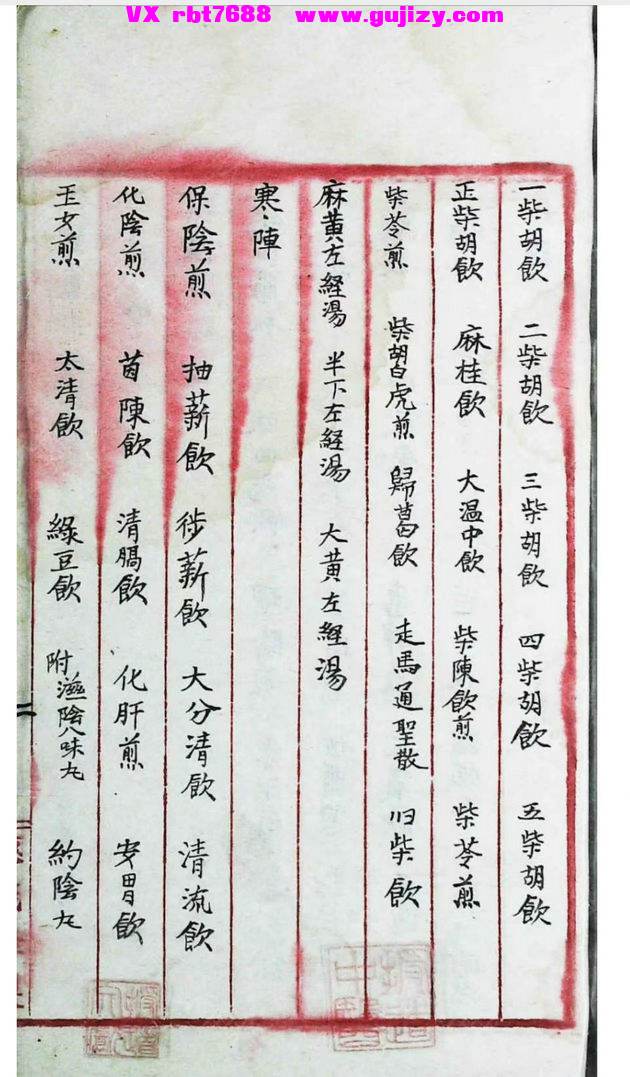 VX rbt7688 www.gujizy.com
一柴胡飲 二柴胡飲 三柴胡飲 四柴胡飲 五柴胡飲
正柴胡飲 麻桂飲 大温中飲 柴陳飲煎 柴苓煎
柴苓煎 柴胡白虎煎 歸葛飲 走馬通聖散 归柴飲
麻黄左経湯 半下左経湯 大黄左経湯
寒陣
保陰煎 抽薪飲 徙薪飲 大分清飲 清流飲
化陰煎 茵陳飲 清膈飲 化肝煎 安胃飲
玉女煎 太清飲 綠豆飲 附滋陰八味丸 約陰丸